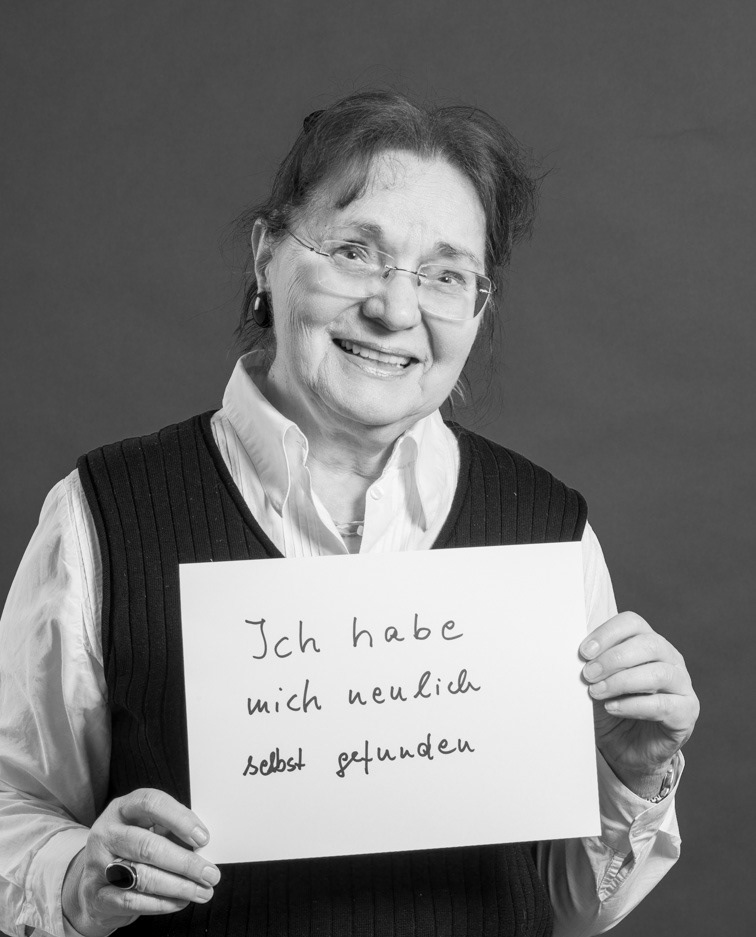 Ich habe
mich neulich
selbst gefunden